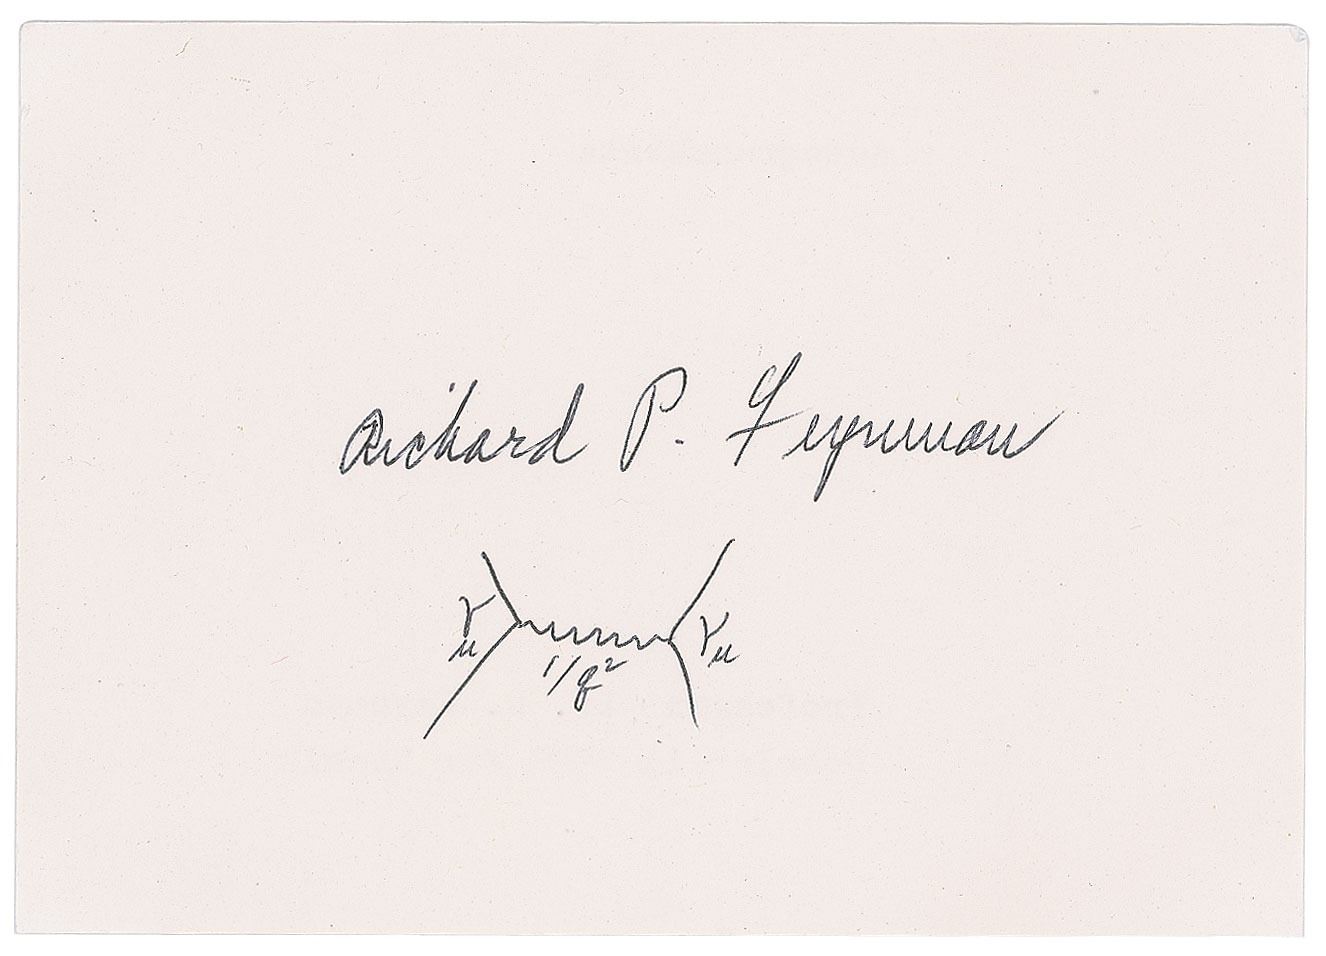 Richard P. Feynman
γμ γμ
1/q²